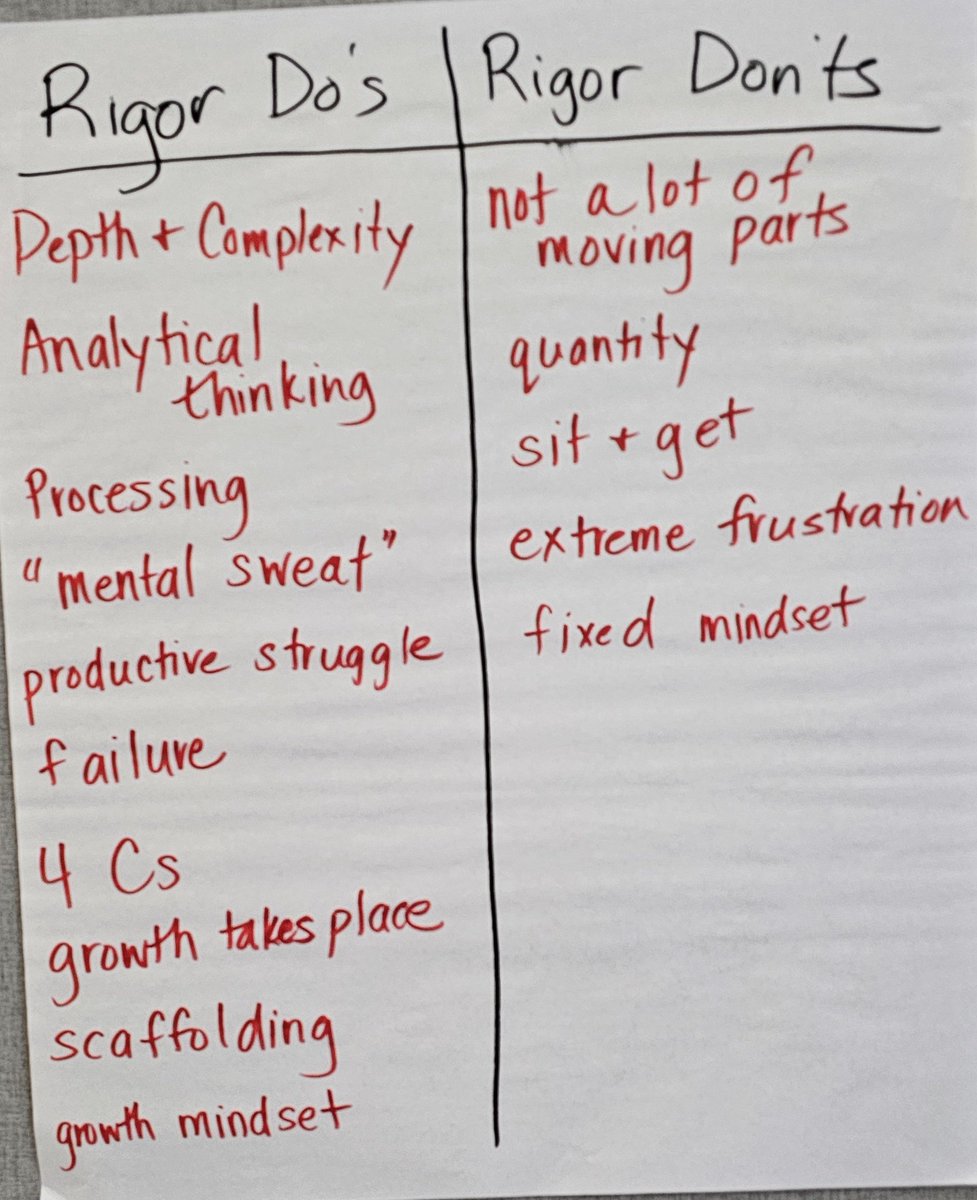 Rigor Do's
Depth + Complexity
Analytical
thinking
Processing
"mental sweat"
productive struggle
failure
4 Cs
growth takes place
scaffolding
growth mindset
Rigor Don'ts
not a lot of
moving parts
quantity
sit + get
extreme frustration
fixed mindset